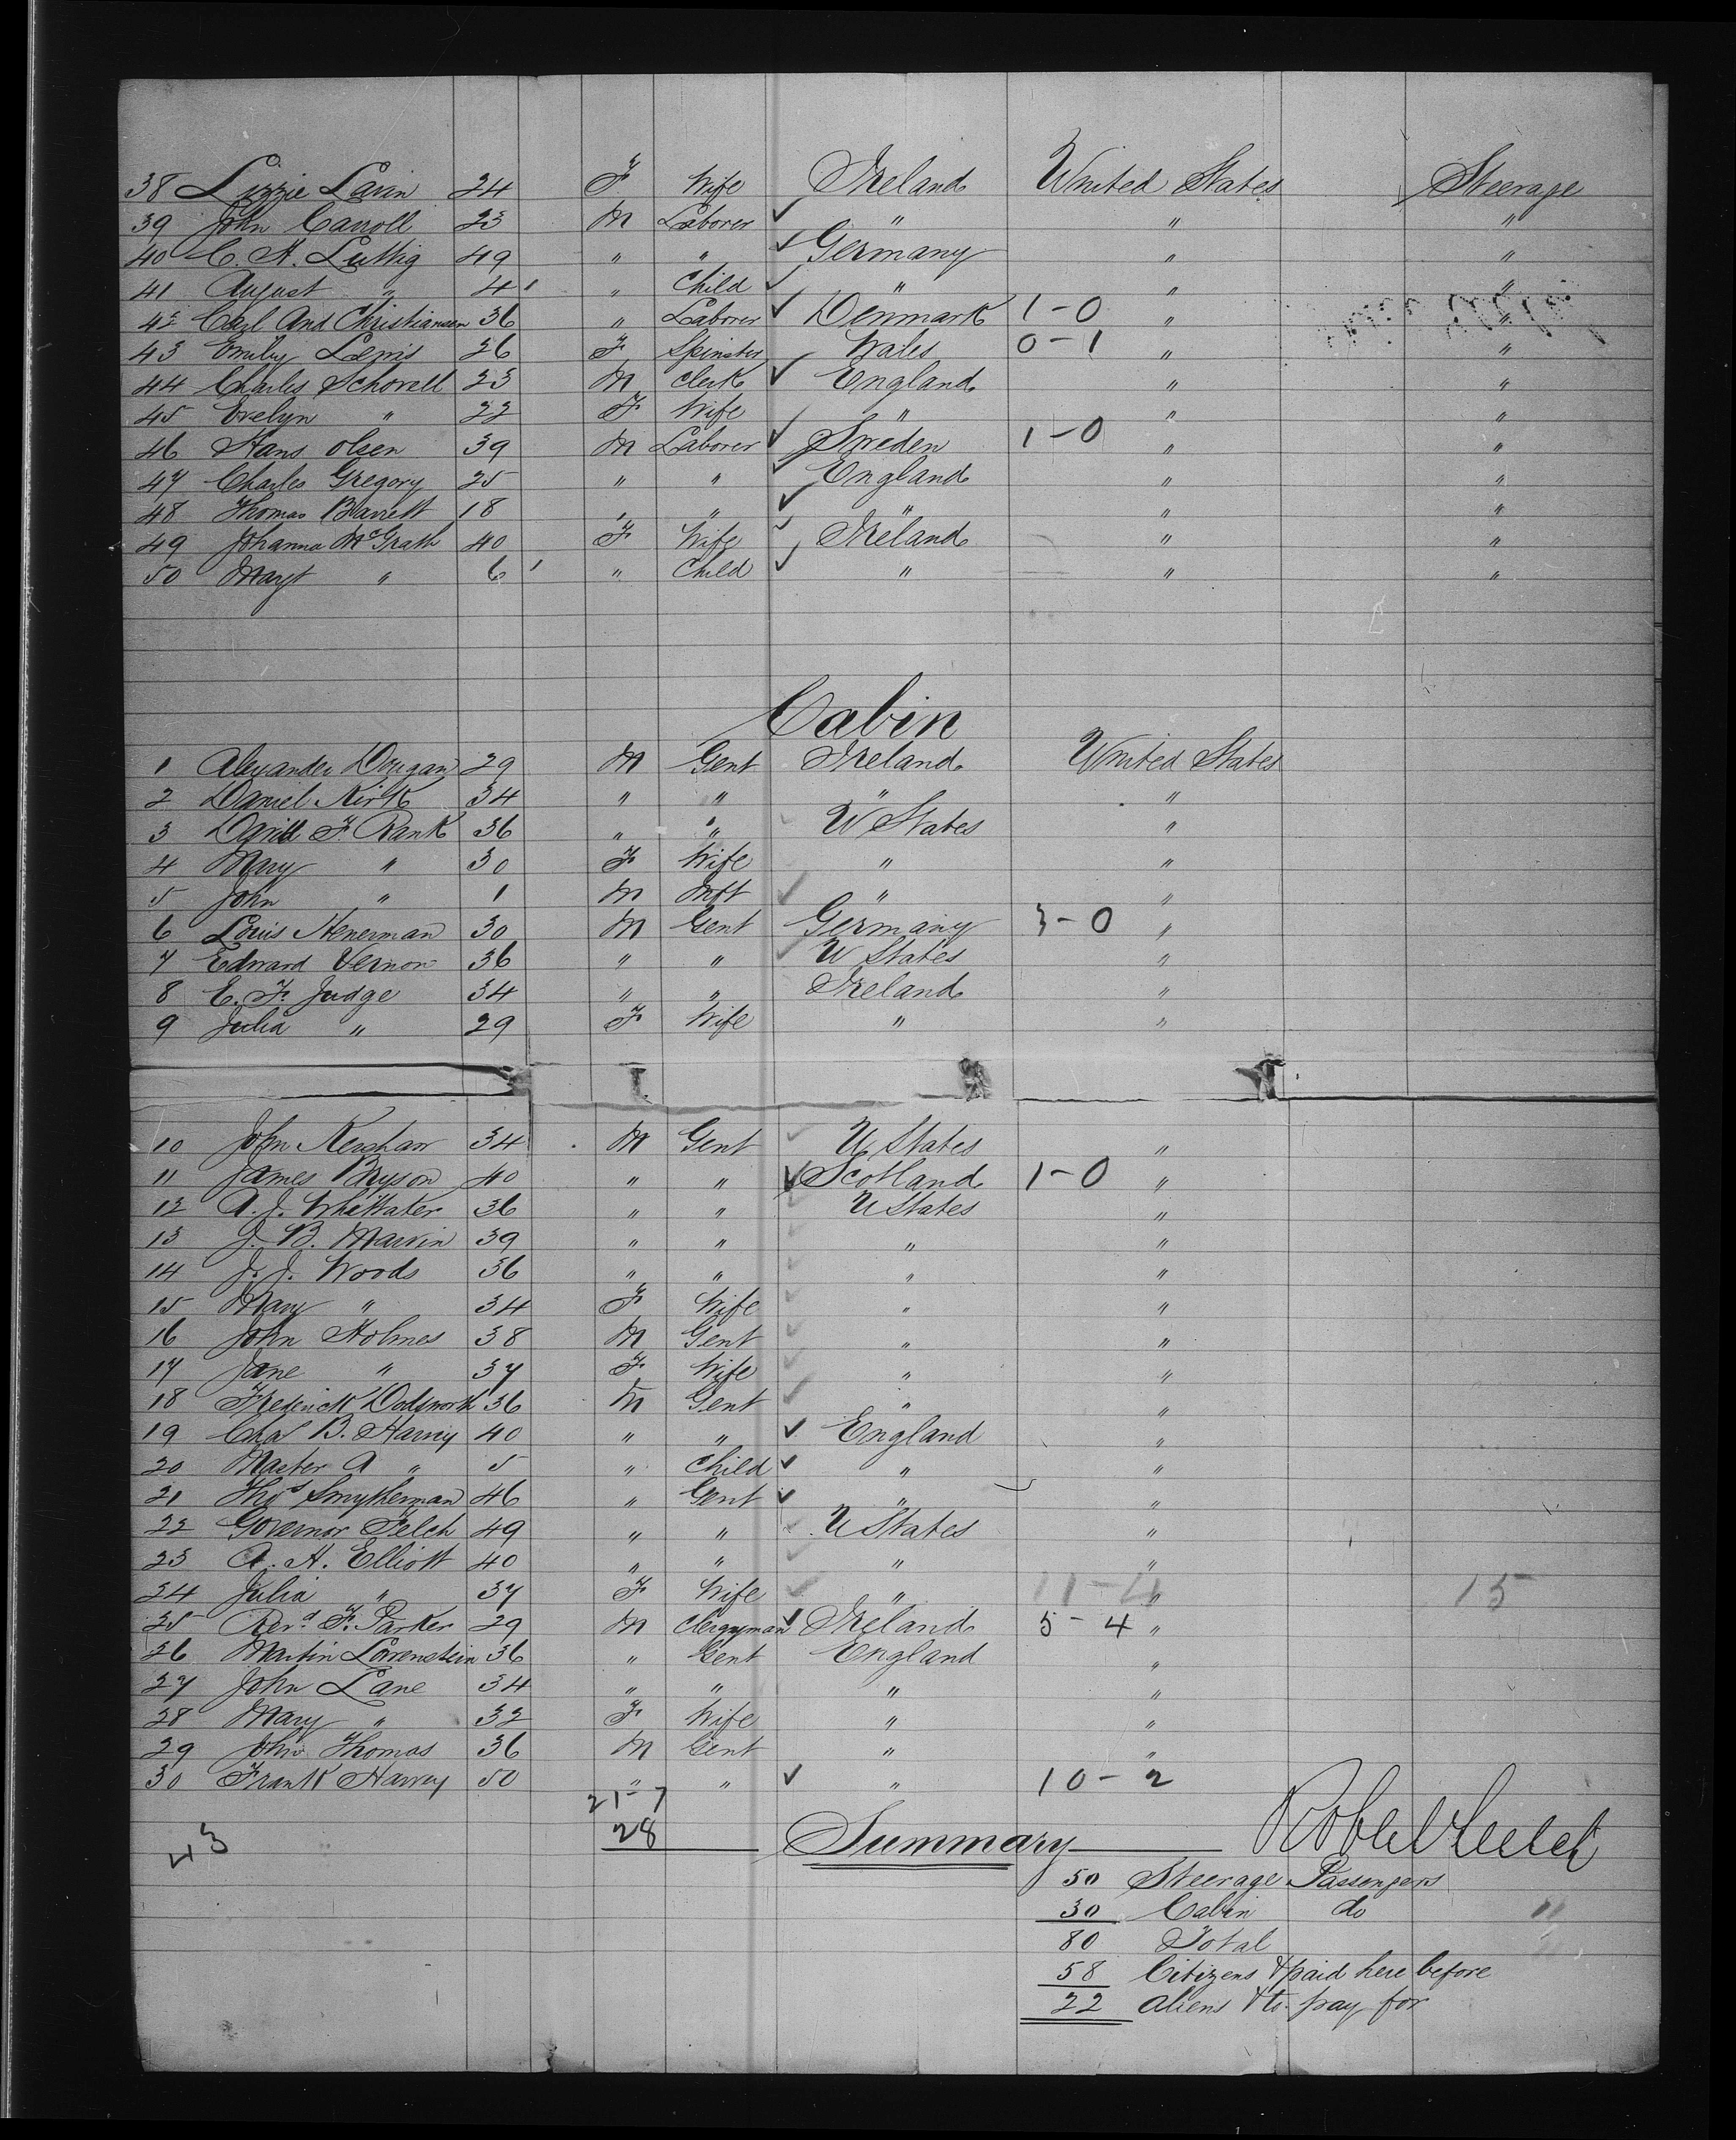 38 Lizzie Lavin 24 F Wife Ireland United States Steerage
39 John Carroll 23 M Laborer ✓ " " "
40 C. A. Luttig 49 " " ✓ Germany " "
41 August " 4 ' " Child ✓ " " "
42 Carl And Christiansen 36 " Laborer ✓ Denmark 1-0 " "
43 Emily Lewis 26 F Spinster Wales 0-1 " "
44 Charles Schovell 23 M Clerk ✓ England " "
45 Evelyn " 22 F Wife " " "
46 Hans Olsen 39 M Laborer ✓ Sweden 1-0 " "
47 Charles Gregory 25 " " ✓ England " "
48 Thomas Barrett 18 " " ✓ " " "
49 Johanna McGrath 40 F Wife ✓ Ireland " "
50 Magt " 6 ' " Child ✓ " " "
Cabin
1 Alexander Dougan 29 M Gent Ireland United States
2 Daniel Kirk 34 " " " "
3 David F. Rank 36 " " U States "
4 Mary " 30 F Wife " "
5 John " 1 M Inft ✓ " "
6 Louis Henerman 30 M Gent Germany 3-0 "
7 Edward Vernon 36 " " ✓ U States "
8 E. F. Judge 34 " " Ireland "
9 Julia " 29 F Wife " "
10 John Kershaw 34 M Gent ✓ U States "
11 James Bryson 40 " " ✓ Scotland 1-0 "
12 A. J. Whittater 36 " " U States "
13 J. B. Marvin 39 " " " "
14 J. J. Woods 36 " " " "
15 Mary " 34 F Wife " "
16 John Holmes 38 M Gent ✓ " "
17 Jane " 37 F Wife ✓ " "
18 Frederick Dodsworth 36 M Gent ✓ " "
19 Chas B. Harvey 40 " " ✓ England "
20 Master A " 5 " Child ✓ " "
21 Thos Smytherman 46 " Gent ✓ " "
22 Governor Felch 49 " " U States "
23 A. H. Elliott 40 " " ✓ " "
24 Julia " 37 F Wife ✓ " 11-4 " 15
25 Revd F. Parker 29 M Clergyman ✓ Ireland 5-4 "
26 Martin Lovenstein 36 " Gent England "
27 John Lane 34 " " " "
28 Mary " 32 F Wife " "
29 John Thomas 36 M Gent " "
30 Frank Harvey 50 " " ✓ " 10-2 "
21-7
43 28 Summary
50 Steerage Passengers
30 Cabin do
80 Total
58 Citizens & paid here before
22 Aliens & to pay for